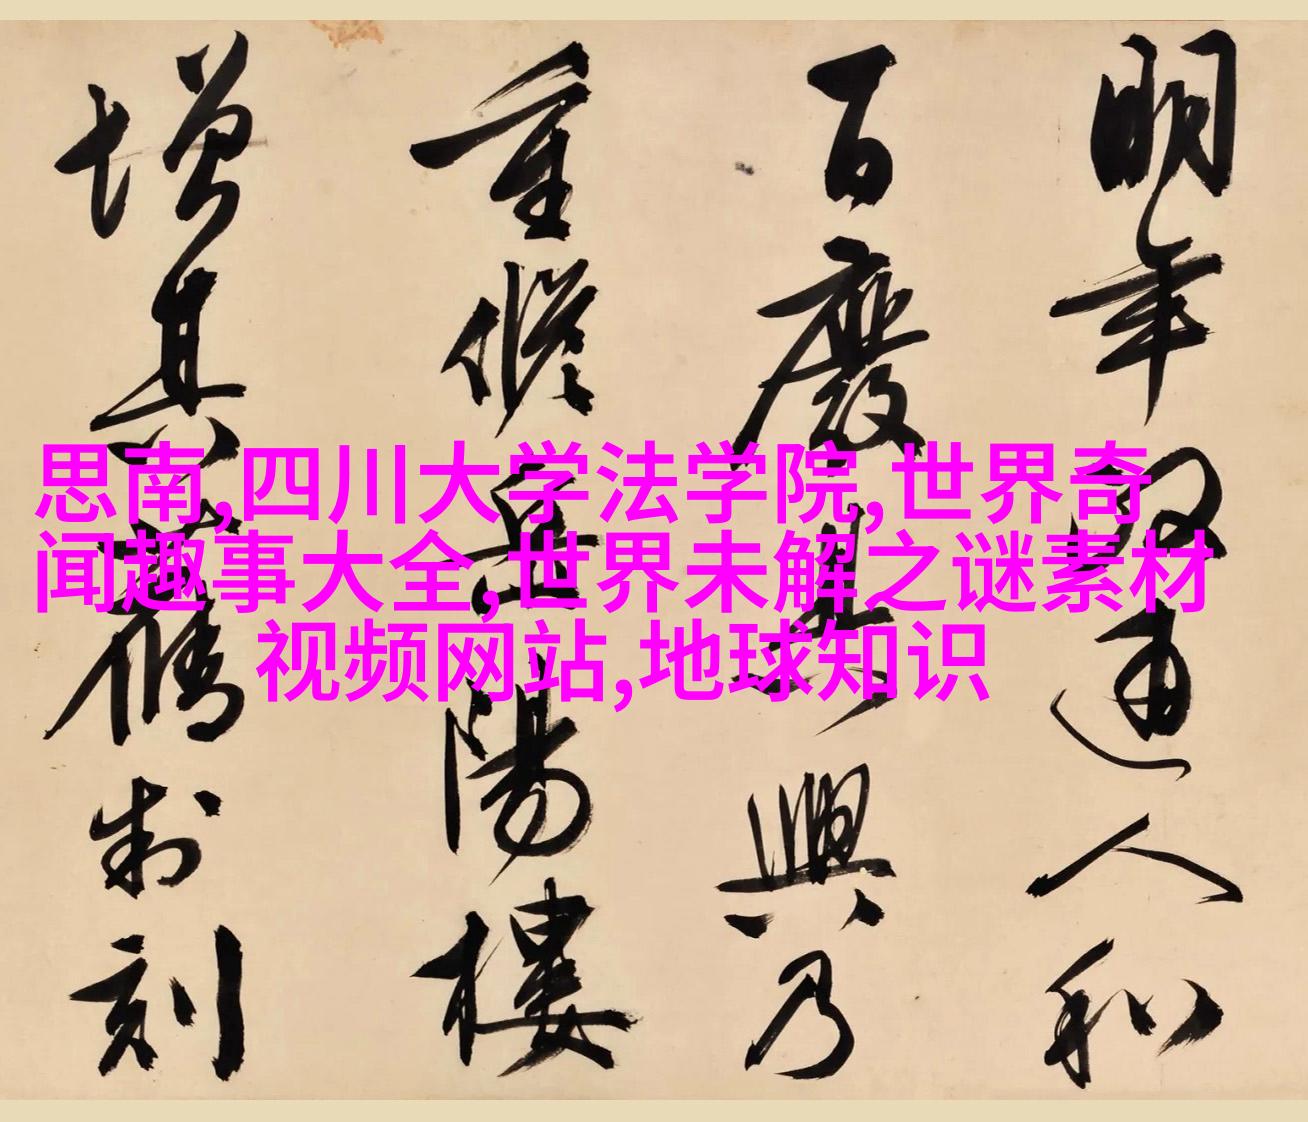 明年政通人和
百廢具興乃
重脩岳陽樓
增其舊制刻
思南,四川大学法学院,世界奇
闻趣事大全,世界未解之谜素材
视频网站,地球知识